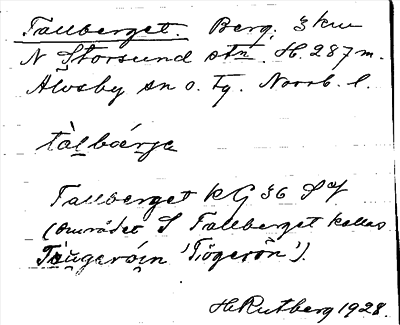 Tallberget. Berg, 3 km
N Storsund stn. H. 287 m.
Älvsby sn o. Tg. Norrb. l.
tàlbárja
Tallberget kG 36 S
(området S Tallberget kallas
'Tögerön').
H. Rutberg 1928.